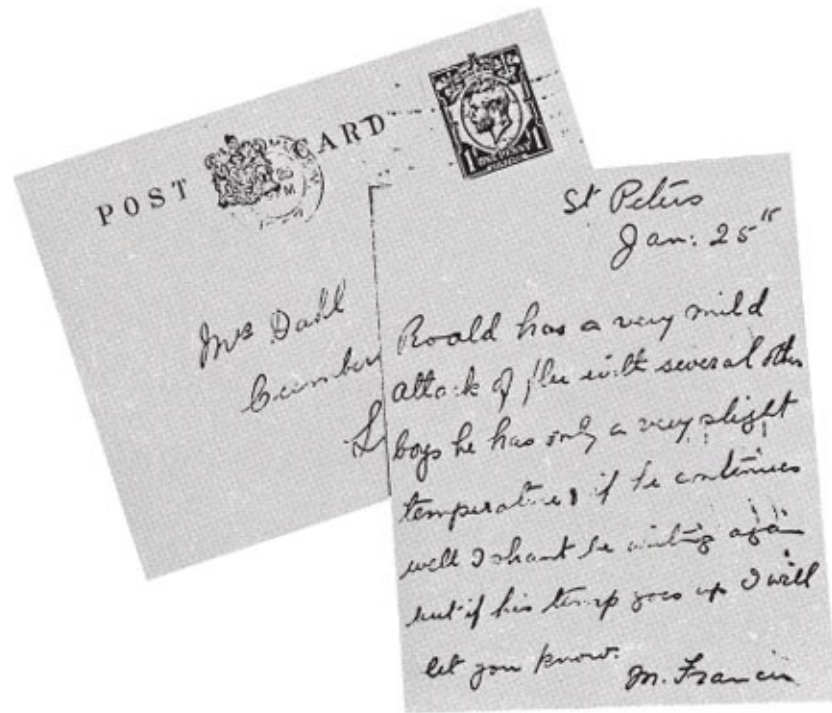 POST CARD
1 ONE PENNY 1
POSTAGE
Mrs Dahl
Cumber
St Peters
Jan: 25th
Roald has a very mild
attack of flu with several other
boys he has only a very slight
temperature, if he continues
well I shant be writing again
but if his temp goes up I will
let you know.
M. Francis